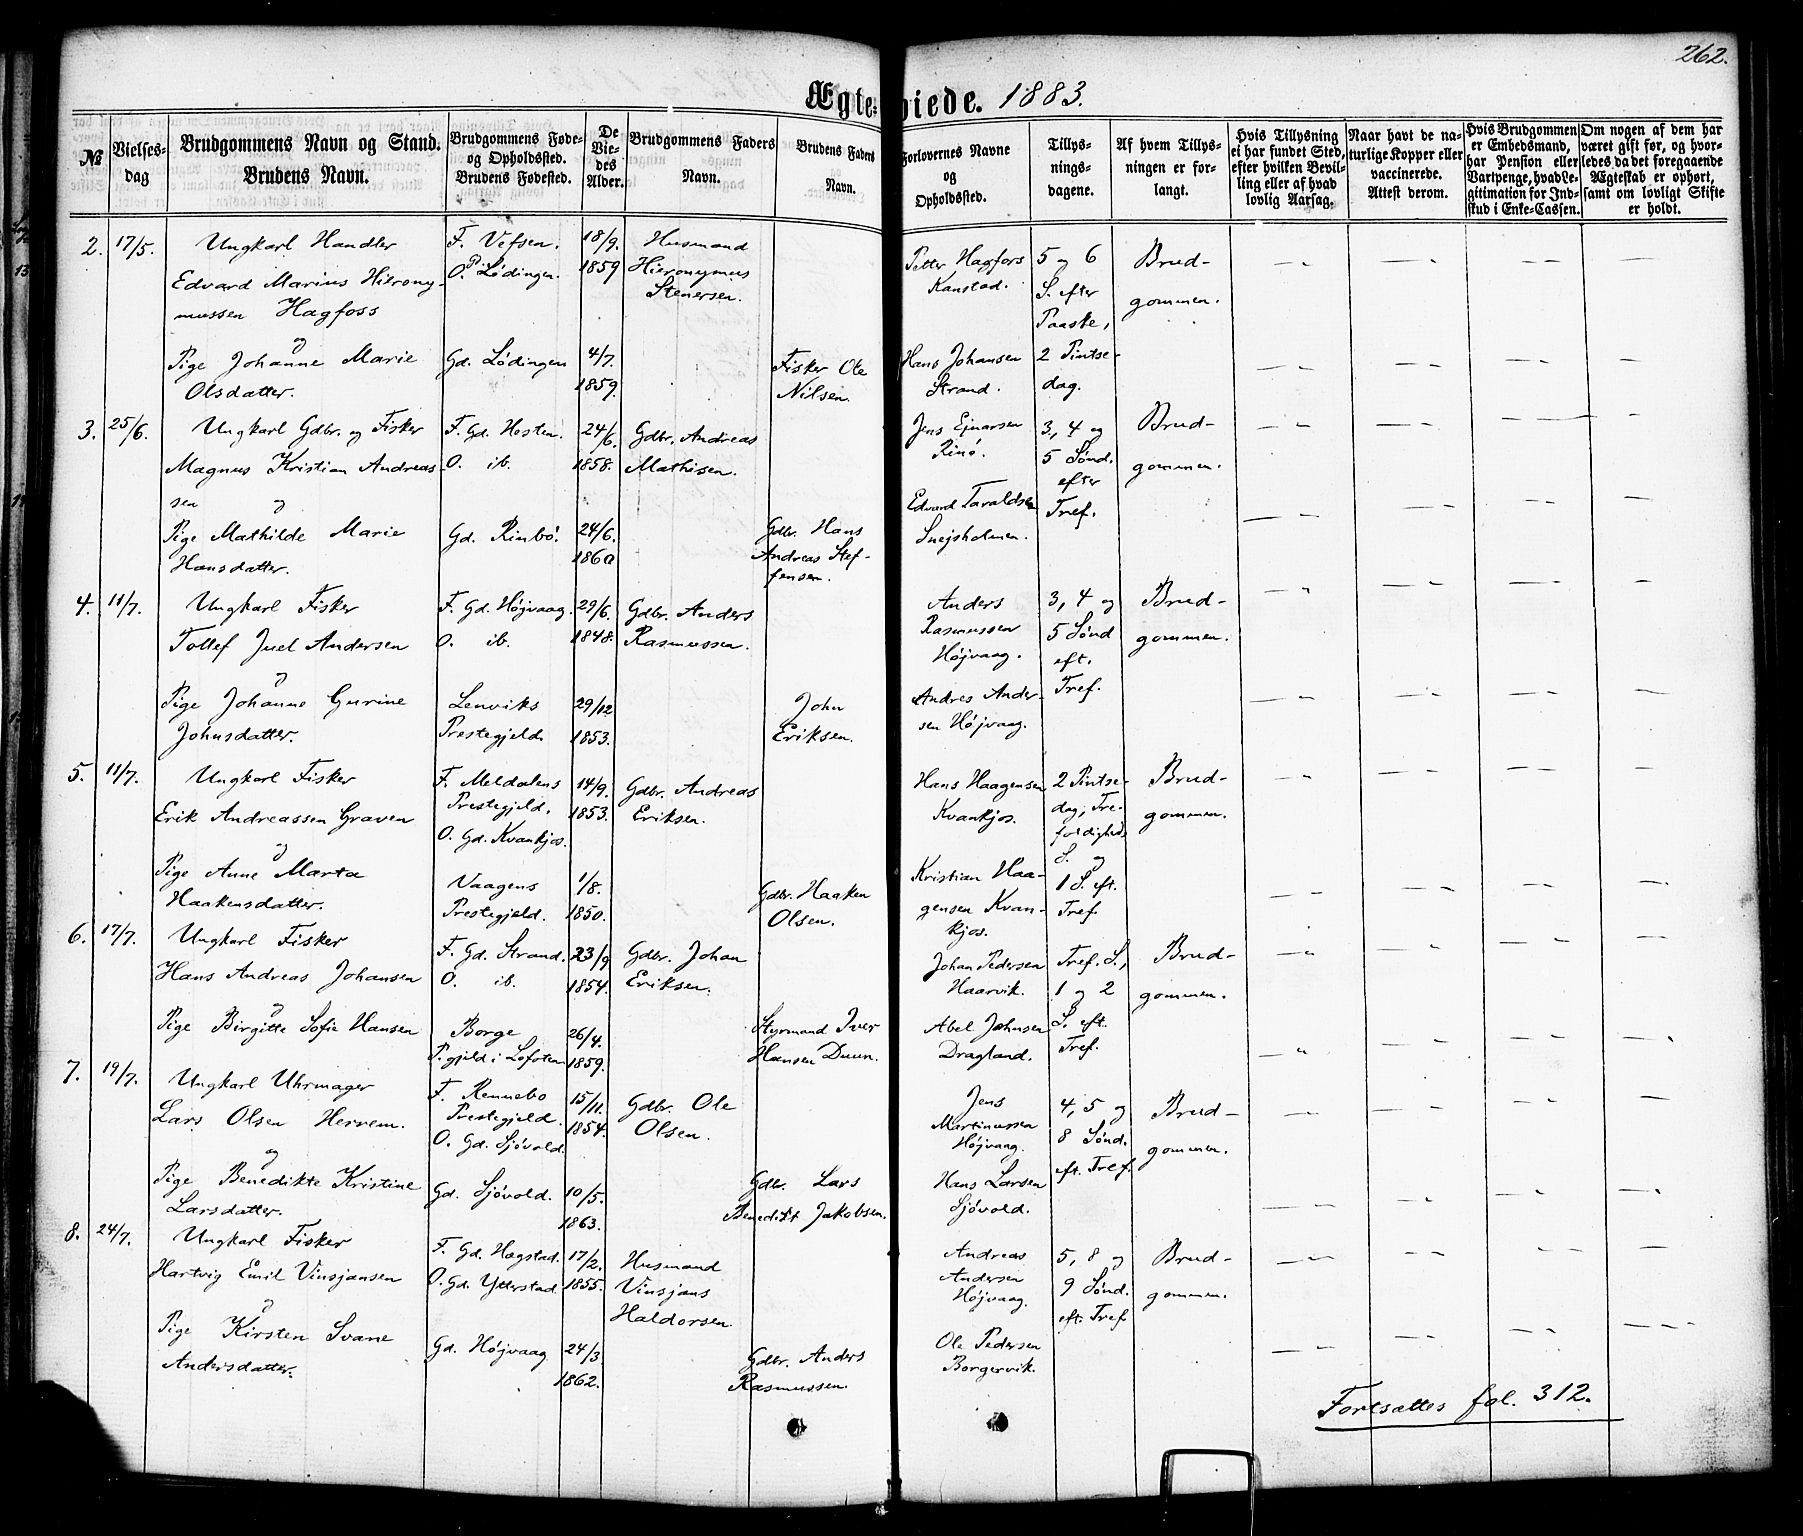 262.
Ægteviede. 1883.
№
Vielses-
dag
Brudgommens Navn og Stand.
Brudens Navn.
Brudgommens Føde-
og Opholdssted.
Brudens Fødested.
De
Vie-
des
Alder.
Brudgommens Faders
Navn.
Brudens Faders
Navn.
Forlovernes Navne
og
Opholdssted.
Tillys-
nings-
dagene.
Af hvem Tillys-
ningen er for-
langt.
Hvis Tillysning
ei har fundet Sted,
efter hvilken Bevil-
ling eller af hvad
lovlig Aarsag.
Naar havt de na-
turlige Kopper eller
vaccinerede.
Attest derom.
Hvis Brudgommen
er Embedsmand,
har Pension eller
Vartpenge, hvad Le-
gitimation for Ind-
skud i Enke-Cassen.
Om nogen af dem har
været gift før, og hvor-
ledes da det foregaaende
Ægteskab er ophørt,
samt om lovligt Skifte
er holdt.
2. 17/5.
Ungkarl Handler
Edvard Marius Hierony-
mussen Hagfoss
og
Pige Johanne Marie
Olsdatter.
F. Vefsen.
O. Pr. Lødingen.
Gd. Lødingen
18/9.
1859
4/7.
1859.
Husmand
Hieronymus
Stenersen.
Fisker Ole
Nilsen.
Petter Hagfors
Kanstad.
Hans Johansen
Strand.
5 og 6
S. efter
Paaske,
2 Pintse-
dag.
Brud-
gommen.
3. 25/6.
Ungkarl Gdbr. og Fisker
Magnus Kristian Andreas-
sen og
Pige Mathilde Marie
Hansdatter.
F. Gd. Hesten.
O. ib.
Gd. Rinbø.
24/6.
1858.
24/6.
1860
Gdbr. Andreas
Mathisen.
Gdbr. Hans
Andreas Stef-
fensen.
Jens Ejnarsen
Rinø.
Edvard Taraldsen
Snejsholmen.
3, 4 og
5 Sønd.
efter
Tref.
Brud-
gommen.
4. 11/7.
Ungkarl Fisker
Tollef Juel Andersen
og
Pige Johanne Gurine
Johnsdatter.
F. Gd. Højvaag.
O. ib.
Lenviks
Prestegjeld.
29/6.
1848.
29/12
1853.
Gdbr. Anders
Rasmussen.
John
Eriksen.
Anders
Rasmussen
Højvaag.
Andres Ander-
sen Højvaag.
3, 4 og
5 Sønd
eft.
Tref.
Brud-
gommen.
5. 11/7.
Ungkarl Fisker
Erik Andreassen Graven
og
Pige Anne Marta
Haakensdatter.
F. Meldalens
Prestegjeld.
O. Gd. Kvankjos.
Vaagens
Prestegjeld.
14/9.
1853.
1/8.
1850.
Gdbr. Andreas
Eriksen.
Gdbr. Haaken
Olsen.
Hans Haagensen
Kvankjos.
Kristian Haa-
gensen Kvan-
kjos.
2 Pintse-
dag, Tre-
foldigheds
S. og
1 S. eft.
Tref.
Brud-
gommen.
6. 17/7.
Ungkarl Fisker
Hans Andreas Johansen
og
Pige Birgitte Sofie Hansen
F. Gd. Strand.
O. ib.
Borge
P.gjeld i Lofoten
23/9
1854.
26/4.
1859.
Gdbr. Johan
Eriksen.
Styrmand Iver
Hansen Duun.
Johan Pedersen
Haarvik.
Abel Johnsen
Dragland.
Tref. S.,
1 og 2
S. eft.
Tref.
Brud-
gommen.
7. 19/7.
Ungkarl Uhrmager
Lars Olsen Herrem.
og
Pige Benedikte Kristine
Larsdatter.
F. Rennebo
Prestegjeld.
O. Gd. Sjøvold.
Gd. Sjøvold.
15/11.
1854.
10/5.
1863.
Gdbr. Ole
Olsen.
Gdbr. Lars
Benedikt Jakobsen.
Jens
Martinussen
Højvaag.
Hans Larsen
Sjøvold.
4, 5 og
8 Sønd.
eft. Tref.
Brud-
gommen.
8. 24/7.
Ungkarl Fisker
Hartvig Emil Vinsjansen
og
Pige Kirsten Svane
Andersdatter.
F. Gd. Hægstad.
O. Gd. Ytterstad.
Gd. Højvaag
17/2.
1855.
24/3
1862.
Husmand
Vinsjans
Haldorsen.
Gdbr. Anders
Rasmussen.
Andreas
Andersen
Højvaag.
Ole Pedersen
Borgervik.
5, 8 og
9 Sønd.
eft. Tref
Brud-
gommen.
Fortsættes fol. 312.